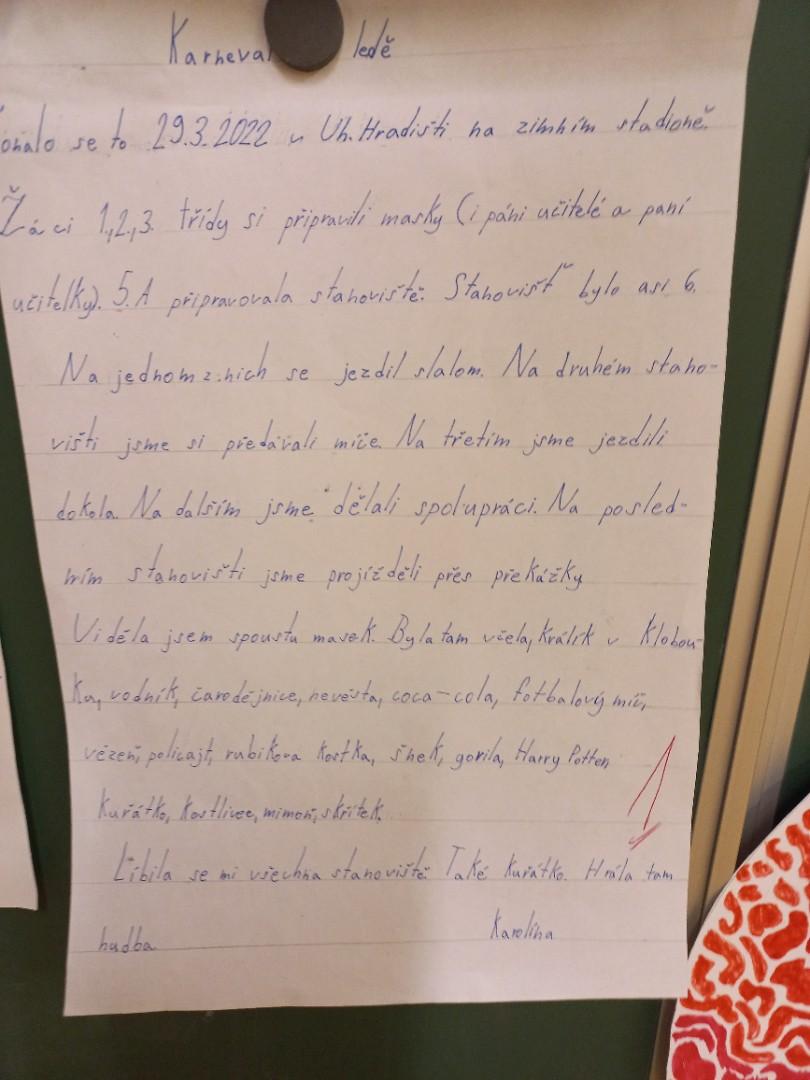 Karneval ledě
onalo se to 29.3.2022 v Uh. Hradišti na zimním stadioně.
Žáci 1.,2.,3. třídy si připravili masky (i páni učitelé a paní
učitelky). 5.A připravovala stanoviště. Stanovišť bylo asi 6.
Na jednom z nich se jezdil slalom. Na druhém stano-
višti jsme si předávali míče. Na třetím jsme jezdili
dokola. Na dalším jsme dělali spolupráci. Na posled-
ním stanovišti jsme projížděli přes překážky
Viděla jsem spoustu masek. Byla tam včela, králík v klobou-
ka, vodník, čarodějnice, nevěsta, coca-cola, fotbalový míč,
vězení, policajt, rubikova kostka, šnek, gorila, Harry Potter,
kuřátko, kostlivec, mimoň, skřítek.
Líbila se mi všechna stanoviště. Také kuřátko. Hrála tam
hudba. Karolína
1